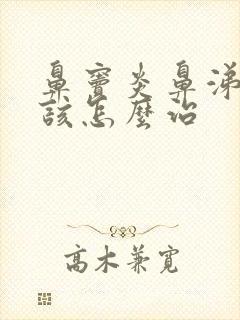 鼻竇炎鼻涕
該怎麼治
高木兼寛